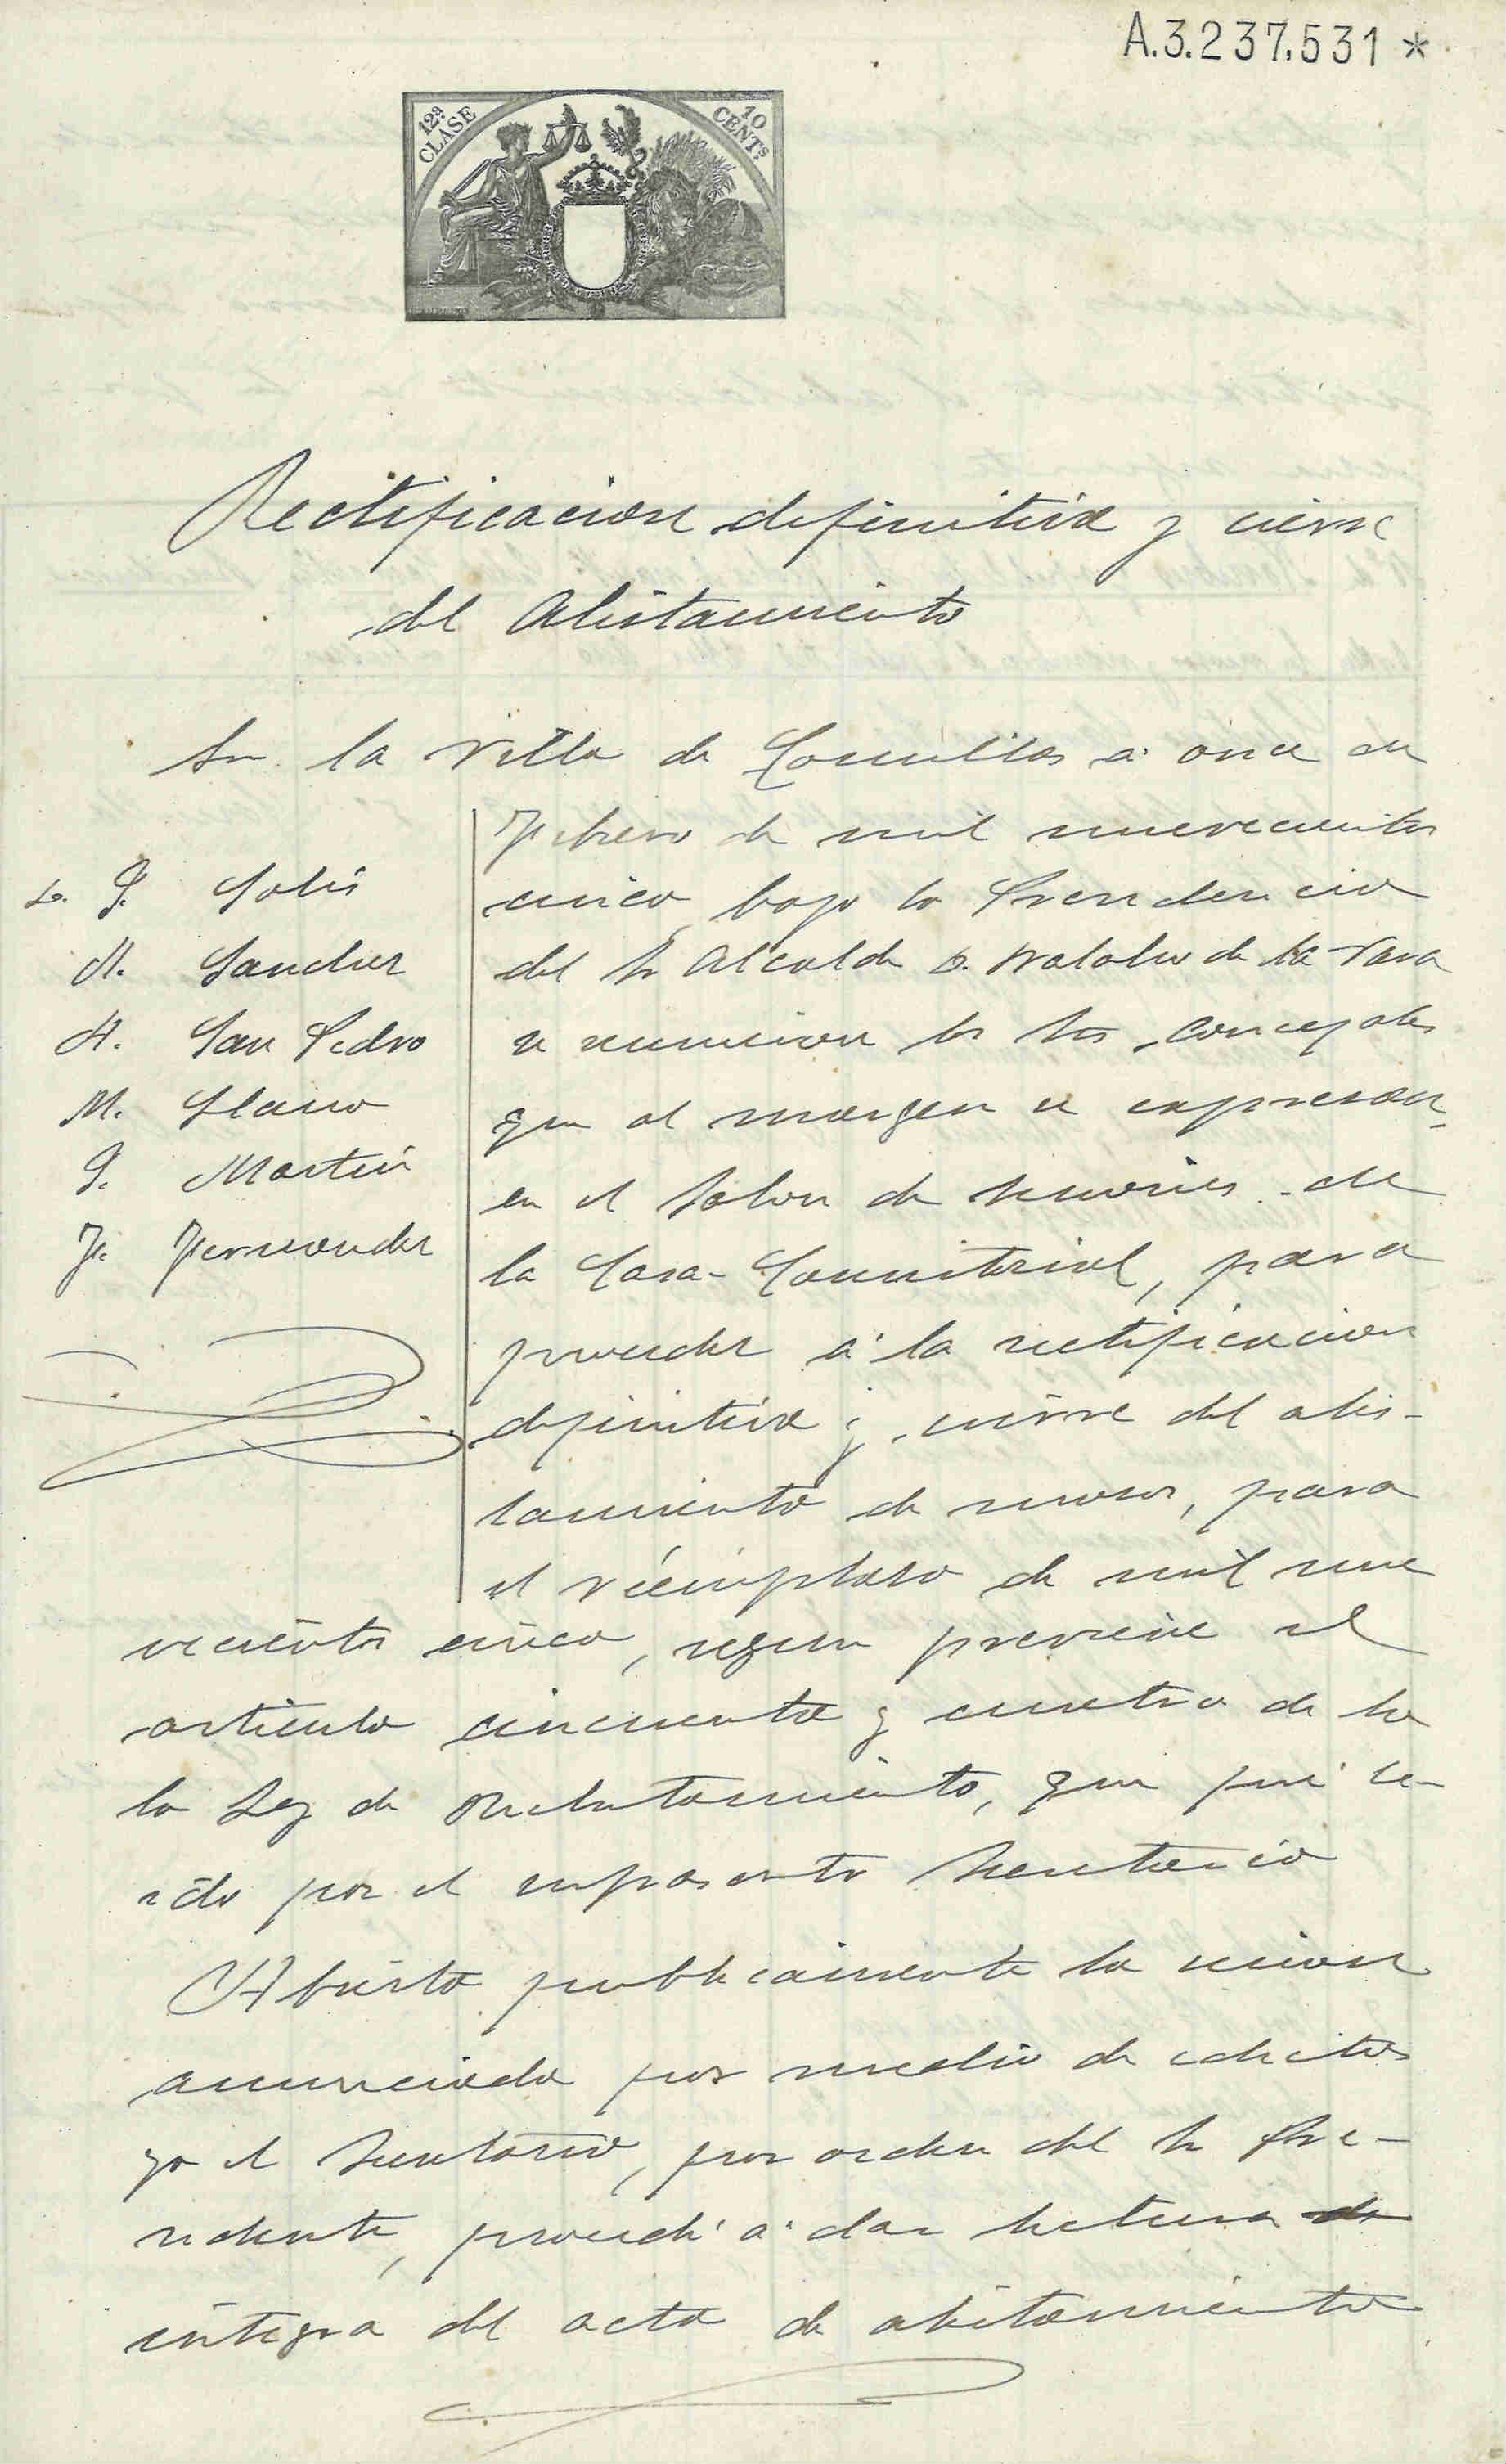 A.3.237.531 *
12ª CLASE
10 CENTs
Rectificacion definitiva y cierre
del Alistamiento
En la Villa de Comillas á once de
Febrero de mil novecientos
cinco, bajo la Presidencia
del Sr Alcalde D. de la Vara
se reunieron los Sres Concejales
que al margen se expresan,
en el Salon de sesiones de
la Casa-Consistorial, para
proceder á la rectificacion
definitiva y cierre del alis-
tamiento de mozos, para
el reemplazo de mil nove
cientos cinco, segun previene el
articulo cincuenta y cuatro de la
la Ley de Reclutamiento, que fué le-
ido por el infrascrito Secretario
S. Solis
M. Sanchez
A. San Pedro
M. Llano
S. Martin
F. Fernandez
Abierta publicamente la sesion
anunciada por medio de edictos
yo el Secretario, por orden del Sr Pre-
sidente, procedí á dar lectura de
integra del acta de alistamiento